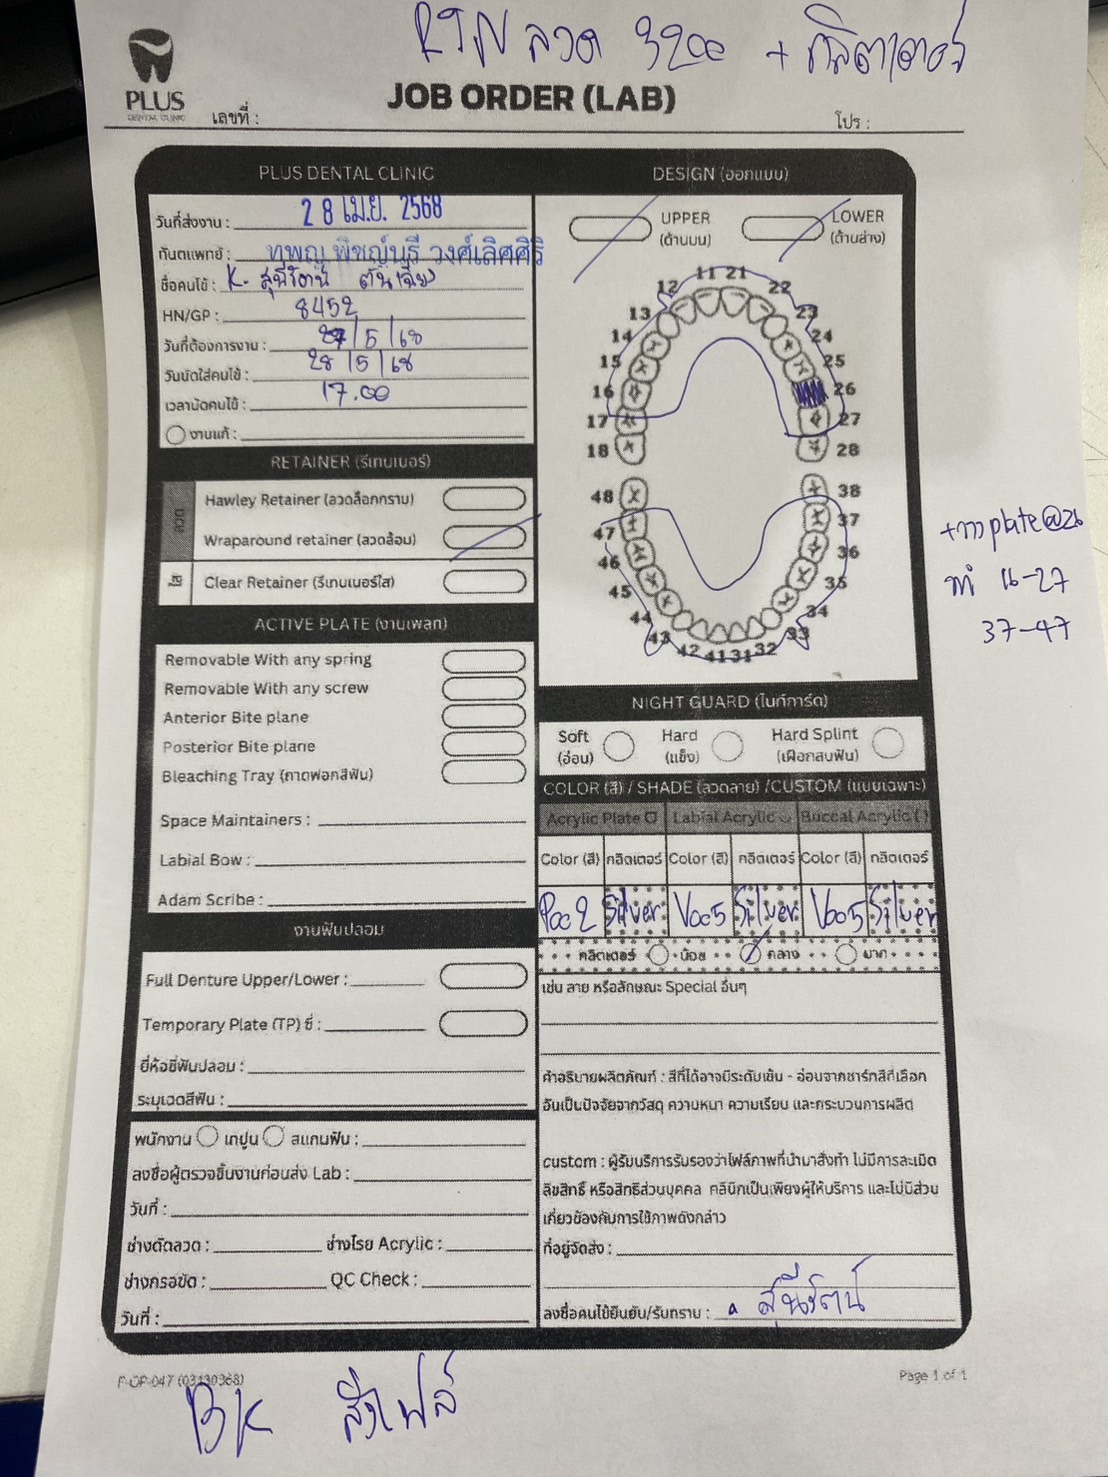 RTN ลวด 3200 + กลิตเตอร์
PLUS
DENTAL CLINIC
JOB ORDER (LAB)
เลขที่ :
โปร :
PLUS DENTAL CLINIC
วันที่ส่งงาน : 28 เม.ย. 2568
ทันตแพทย์ : ทพญ พิชญ์นรี วงศ์เลิศศิริ
ชื่อคนไข้ : K. สุนีรัตน์
HN/GP : 8452
วันที่ต้องการงาน : 27/5/68
วันนัดใส่คนไข้ : 28/5/68
เวลานัดคนไข้ : 17.00
งานแก้ :
RETAINER (รีเทนเนอร์)
ลวด
Hawley Retainer (ลวดล็อกกราบ)
Wraparound retainer (ลวดล้อม)
ใส
Clear Retainer (รีเทนเนอร์ใส)
ACTIVE PLATE (งานเพลท)
Removable With any spring
Removable With any screw
Anterior Bite plane
Posterior Bite plane
Bleaching Tray (ถาดฟอกสีฟัน)
Space Maintainers :
Labial Bow :
Adam Scribe :
งานฟันปลอม
Full Denture Upper/Lower :
Temporary Plate (TP) ซี่ :
ยี่ห้อซี่ฟันปลอม :
ระบุเฉดสีฟัน :
พนักงาน เทปูน สแกนฟัน :
ลงชื่อผู้ตรวจชิ้นงานก่อนส่ง Lab :
วันที่ :
ช่างดัดลวด : ช่างโรย Acrylic :
ช่างกรอขัด : QC Check :
วันที่ :
DESIGN (ออกแบบ)
UPPER
(ด้านบน)
LOWER
(ด้านล่าง)
11 21
12 22
13 23
14 24
15 25
16 26
17 27
18 28
48 38
47 37
46 36
45 35
44 34
43 33
42 41 31 32
+กด plate@26
ทำ 16-27
37-47
NIGHT GUARD (ไนท์การ์ด)
Soft
(อ่อน)
Hard
(แข็ง)
Hard Splint
(เฝือกสบฟัน)
COLOR (สี) / SHADE (ลวดลาย) /CUSTOM (แบบเฉพาะ)
Acrylic Plate Labial Acrylic Buccal Acrylic ( )
Color (สี) กลิตเตอร์ Color (สี) กลิตเตอร์ Color (สี) กลิตเตอร์
P002 Silver V005 Silver V005 Silver
กลิตเตอร์ น้อย กลาง มาก
เช่น ลาย หรือลักษณะ Special อื่นๆ
คำอธิบายผลิตภัณฑ์ : สีที่ได้อาจมีระดับเข้ม - อ่อนจากชาร์ทสีที่เลือก
อันเป็นปัจจัยจากวัสดุ ความหนา ความเรียบ และกระบวนการผลิต
custom : ผู้รับบริการรับรองว่าไฟล์ภาพที่นำมาสั่งทำ ไม่มีการละเมิด
ลิขสิทธิ์ หรือสิทธิส่วนบุคคล คลินิกเป็นเพียงผู้ให้บริการ และไม่มีส่วน
เกี่ยวข้องกับการใช้ภาพดังกล่าว
ที่อยู่จัดส่ง :
ลงชื่อคนไข้ยืนยัน/รับทราบ : สุนีรัตน์
F-OP-047 (03130368)
Page 1 of 1
BK ส่งไฟล์